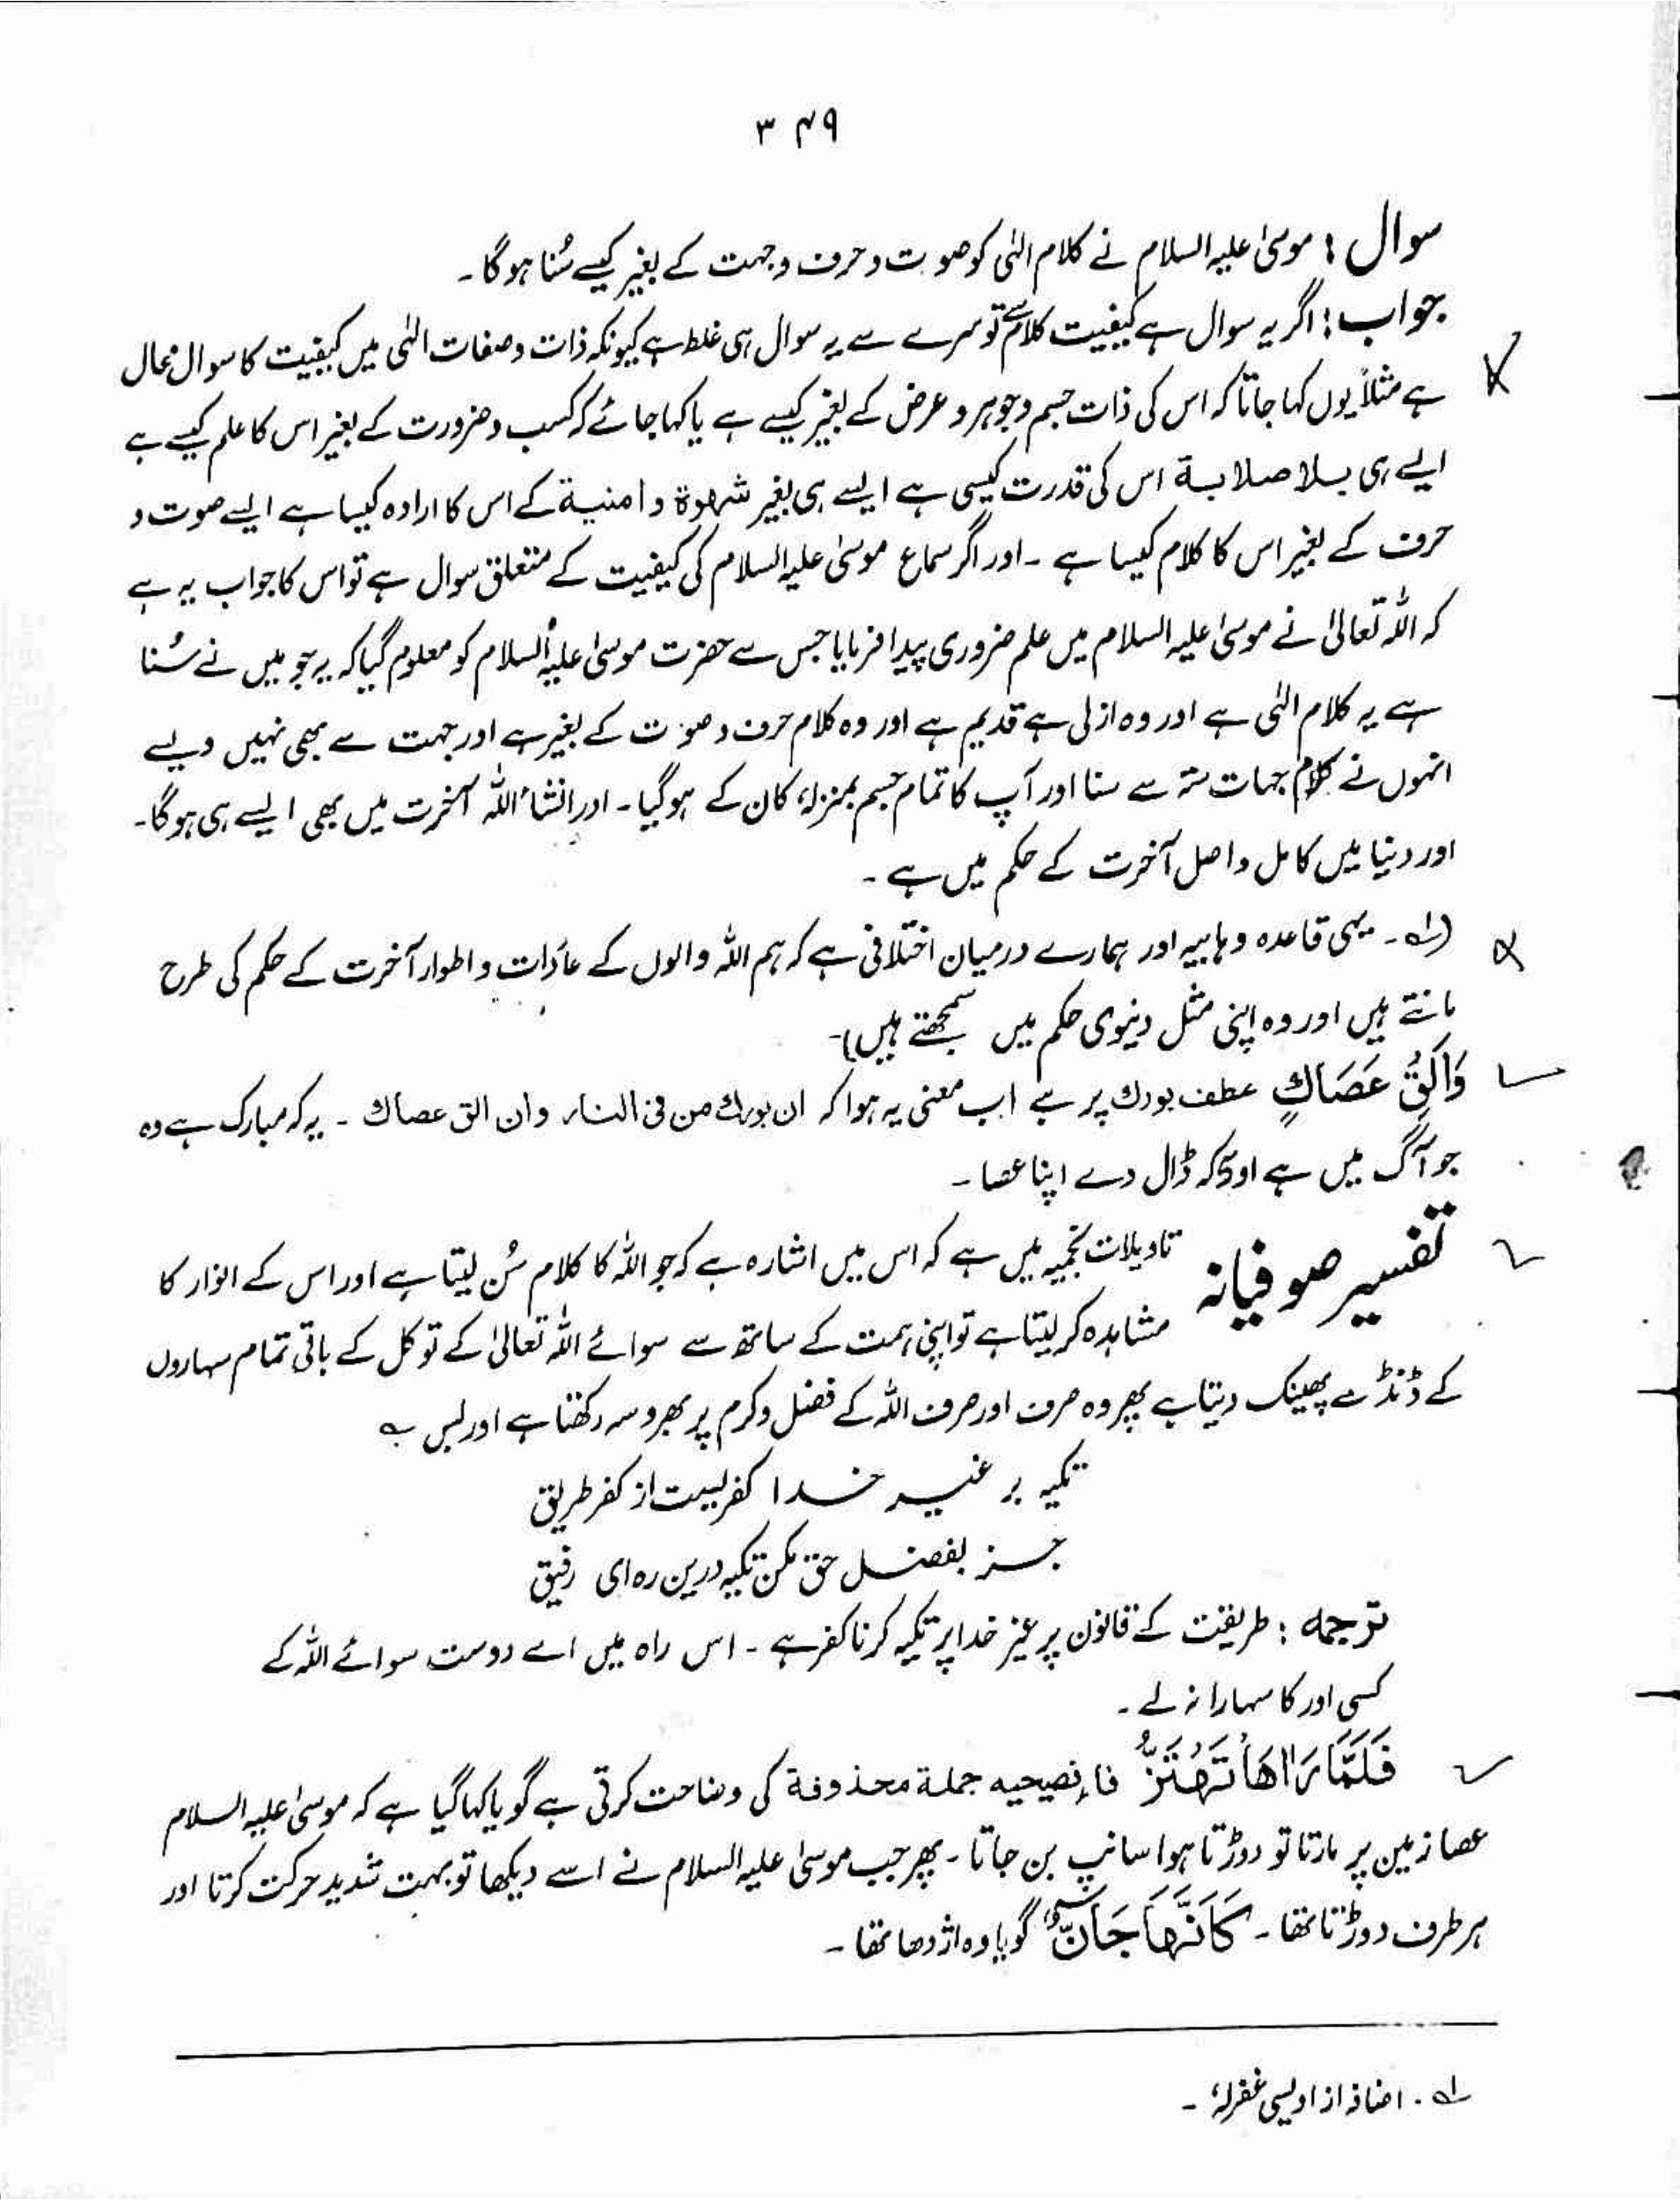 ۳۴۹
سوال : موسیٰ علیہ السلام نے کلام الٰہی کو صوت و حرف و جہت کے بغیر کیسے سُنا ہوگا ۔
جواب : اگر یہ سوال ہے کیفیت کلام سے تو سرے سے یہ سوال ہی غلط ہے کیونکہ ذات و صفات الٰہی میں کیفیت کا سوال محال
ہے مثلاً یوں کہا جاتا کہ اس کی ذات جسم و جوہر و عرض کے بغیر کیسے ہے یا کہا جائے کہ کسب و ضرورت کے بغیر اس کا علم کیسے ہے
ایسے ہی بلا صلابة اس کی قدرت کیسی ہے ایسے ہی بغیر شہوة و امنیة کے اس کا ارادہ کیسا ہے ایسے صوت و
حرف کے بغیر اس کا کلام کیسا ہے ۔ اور اگر سماع موسیٰ علیہ السلام کی کیفیت کے متعلق سوال ہے تو اس کا جواب یہ ہے
کہ اللہ تعالیٰ نے موسیٰ علیہ السلام میں علم ضروری پیدا فرمایا جس سے حضرت موسیٰ علیہ السلام کو معلوم گیا کہ یہ جو میں نے سُنا
ہے یہ کلام الٰہی ہے اور وہ ازلی ہے قدیم ہے اور وہ کلام حرف و صوت کے بغیر ہے اور جہت سے بھی نہیں ویسے
انہوں نے کلام جہات ستہ سے سنا اور آپ کا تمام جسم بمنزلہ کان کے ہوگیا ۔ اور انشاء اللہ آخرت میں بھی ایسے ہی ہوگا۔
اور دنیا میں کامل واصل آخرت کے حکم میں ہے ۔
(لہ ۔ یہی قاعدہ وہابیہ اور ہمارے درمیان اختلافی ہے کہ ہم اللہ والوں کے عادات و اطوار آخرت کے حکم کی طرح
مانتے ہیں اور وہ اپنی مثل دنیوی حکم میں سمجھتے ہیں)۔
وَاَلْقِ عَصَاكَ عطف بورك پر ہے اب معنی یہ ہوا کہ ان بورك من فی النار وان الق عصاك ۔ یہ کہ مبارک ہے وہ
جو آگ میں ہے اور یہ کہ ڈال دے اپنا عصا ۔
تفسیر صوفیانہ تاویلات نجمیہ میں ہے کہ اس میں اشارہ ہے کہ جو اللہ کا کلام سُن لیتا ہے اور اس کے انوار کا
مشاہدہ کر لیتا ہے تو اپنی ہمت کے ساتھ سے سوائے اللہ تعالیٰ کے توکل کے باقی تمام سہاروں
کے ڈنڈے پھینک دیتا ہے پھر وہ صرف اور صرف اللہ کے فضل و کرم پر بھروسہ رکھتا ہے اور بس ؎
تکیہ بر غیر خدا کفریست از کفر طریق
جز بفضل حق مکن تکیہ درین رہ ای رفیق
ترجمہ : طریقت کے قانون پر غیر خدا پر تکیہ کرنا کفر ہے ۔ اس راہ میں اے دوست سوائے اللہ کے
کسی اور کا سہارا نہ لے ۔
فَلَمَّا رَاٰهَا تَهْتَزُّ فاء فصیحیہ جملة محذوفة کی وضاحت کرتی ہے گویا کہا گیا ہے کہ موسیٰ علیہ السلام
عصا زمین پر مارتا تو دوڑتا ہوا سانپ بن جاتا ۔ پھر جب موسیٰ علیہ السلام نے اسے دیکھا تو بہت شدید حرکت کرتا اور
ہر طرف دوڑتا تھا ۔ كَاَنَّهَا جَآنٌّ گویا وہ اژدھا تھا ۔
لہ . اضافہ از اویسی غفرلہ ۔